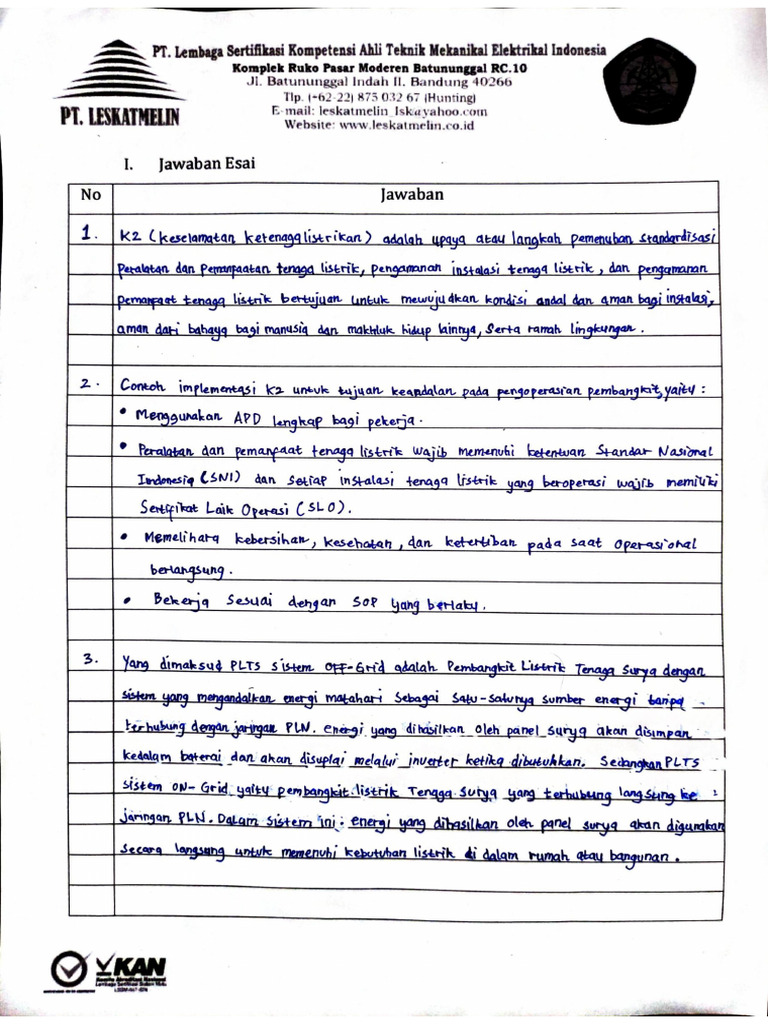 PT. Lembaga Sertifikasi Kompetensi Ahli Teknik Mekanikal Elektrikal Indonesia
Komplek Ruko Pasar Moderen Batununggal RC.10
Jl. Batununggal Indah II. Bandung 40266
Tlp. (+62-22) 875 032 67 (Hunting)
E-mail: leskatmelin_lsk@yahoo.com
Website: www.leskatmelin.co.id
PT. LESKATMELIN
I. Jawaban Esai
No Jawaban
1. K2 (Keselamatan Ketenagalistrikan) adalah upaya atau langkah pemenuhan standardisasi
Peralatan dan Pemanfaatan tenaga listrik, pengamanan instalasi tenaga listrik, dan pengamanan
pemanfaat tenaga listrik bertujuan untuk mewujudkan kondisi andal dan aman bagi instalasi,
aman dari bahaya bagi manusia dan makhluk hidup lainnya, Serta ramah lingkungan.
2. Contoh implementasi K2 untuk tujuan keandalan pada pengoperasian pembangkit, yaitu :
• Menggunakan APD lengkap bagi pekerja.
• Peralatan dan pemanfaat tenaga listrik wajib memenuhi ketentuan Standar Nasional
Indonesia (SNI) dan Setiap instalasi tenaga listrik yang beroperasi wajib memiliki
Sertifikat Laik Operasi (SLO).
• Memelihara kebersihan, kesehatan, dan ketertiban pada saat Operasional
berlangsung.
• Bekerja Sesuai dengan SOP yang berlaku.
3. Yang dimaksud PLTS sistem OFF-Grid adalah Pembangkit Listrik Tenaga Surya dengan
sistem yang mengandalkan energi matahari Sebagai Satu-satunya sumber energi tanpa
terhubung dengan jaringan PLN. energi yang dihasilkan oleh panel surya akan disimpan
kedalam baterai dan akan disuplai melalui inverter ketika dibutuhkan. Sedangkan PLTS
sistem ON-Grid yaitu pembangkit listrik Tenaga Surya yang terhubung langsung ke
jaringan PLN. Dalam sistem ini energi yang dihasilkan oleh panel surya akan digunakan
secara langsung untuk memenuhi kebutuhan listrik di dalam rumah atau bangunan.
KAN
Komite Akreditasi Nasional